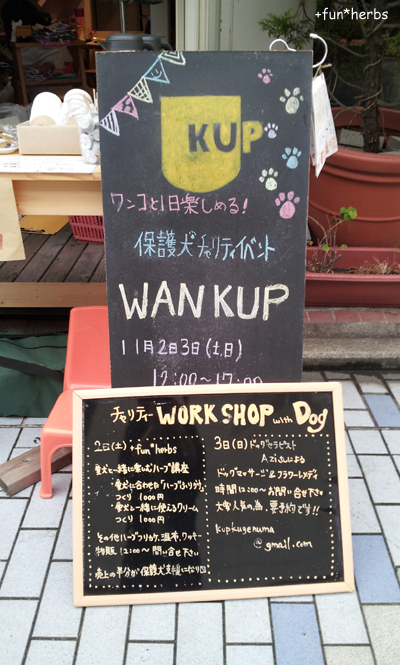 +fun*herbs
KUP
ワンコと1日楽しめる!
保護犬チャリティイベント
WANKUP
11月2日3日(土,日)
12:00〜17:00
チャリティー WORK SHOP with Dog
2日(土) +fun*herbs
愛犬と一緒に楽しむハーブ講座
・愛犬に合わせた「ハーブふりかけ」
つくり 1000円
・愛犬と一緒に使えるクリーム
つくり 1000円
その他ハーブふりかけ、温布、クッキー
物販 12:00〜 問い合せ下さい
売上の半分が保護犬支援に
3日(日) ドッグセラピスト
Aziz
による
ドッグマッサージ&フラワーレメディ
時間 12:00〜 お問い合せ下さい
大変人気の為、要予約です!!
kupkugenuma
@gmail.com